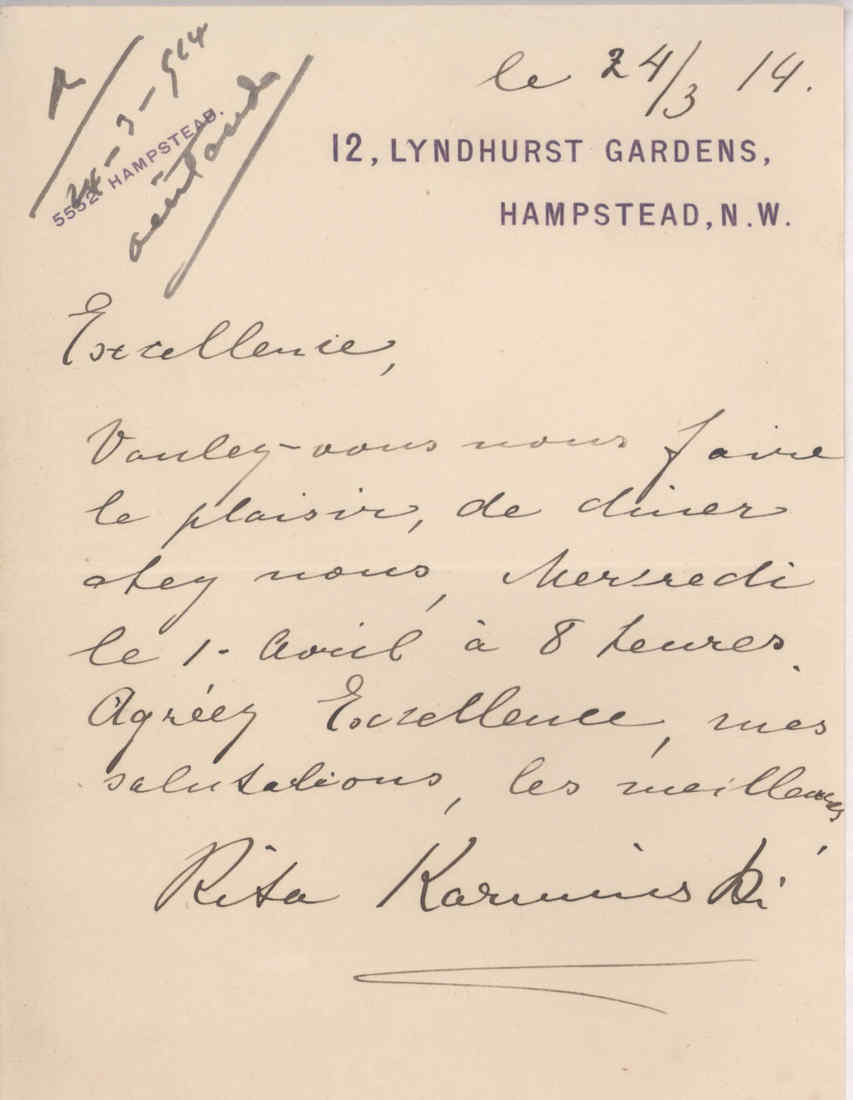 R
24-3-914
5532 HAMPSTEAD.
le 24/3 14.
12, LYNDHURST GARDENS,
HAMPSTEAD, N.W.
Excellence,
Voulez-vous nous faire
le plaisir, de diner
chez nous, Mercredi
le 1. Avril à 8 heures.
Agréez Excellence, mes
salutations, les meilleures
Rita Karminski